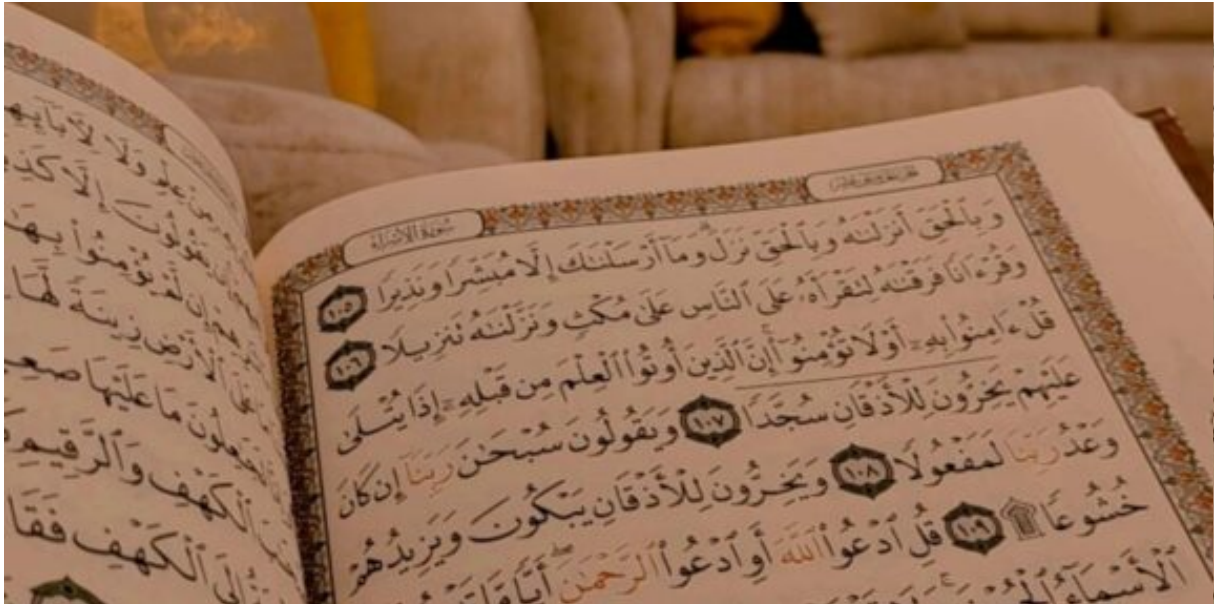 سُورَةُ الْإِسْرَاءِ
وَبِٱلْحَقِّ أَنزَلْنَٰهُ وَبِٱلْحَقِّ نَزَلَ ۗ وَمَآ أَرْسَلْنَٰكَ إِلَّا مُبَشِّرًا وَنَذِيرًا ١٠٥
وَقُرْءَانًا فَرَقْنَٰهُ لِتَقْرَأَهُۥ عَلَى ٱلنَّاسِ عَلَىٰ مُكْثٍ وَنَزَّلْنَٰهُ تَنزِيلًا ١٠٦
قُلْ ءَامِنُوا۟ بِهِۦٓ أَوْ لَا تُؤْمِنُوٓا۟ ۚ إِنَّ ٱلَّذِينَ أُوتُوا۟ ٱلْعِلْمَ مِن قَبْلِهِۦٓ إِذَا يُتْلَىٰ
عَلَيْهِمْ يَخِرُّونَ لِلْأَذْقَانِ سُجَّدًا ١٠٧ وَيَقُولُونَ سُبْحَٰنَ رَبِّنَآ إِن كَانَ
وَعْدُ رَبِّنَا لَمَفْعُولًا ١٠٨ وَيَخِرُّونَ لِلْأَذْقَانِ يَبْكُونَ وَيَزِيدُهُمْ
خُشُوعًا ۩ ١٠٩ قُلِ ٱدْعُوا۟ ٱللَّهَ أَوِ ٱدْعُوا۟ ٱلرَّحْمَٰنَ ۖ أَيًّا مَّا
ٱلْأَسْمَآءُ ٱلْحُسْنَىٰ ۚ
مِنْ عِلْمٍ وَلَا لِـَٔابَآئِهِمْ
يَقُولُونَ إِلَّا كَذِبًا
إِن لَّمْ يُؤْمِنُوا۟ بِهَٰذَا
عَلَى ٱلْأَرْضِ زِينَةً لَّهَا
لَجَٰعِلُونَ مَا عَلَيْهَا صَعِيدًا
ٱلْكَهْفِ وَٱلرَّقِيمِ
إِلَى ٱلْكَهْفِ فَقَالُوا۟